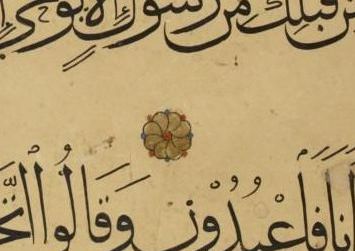 من قبلك من رسول إلا يوحى
أنا فاعبدون وقالوا اتخ